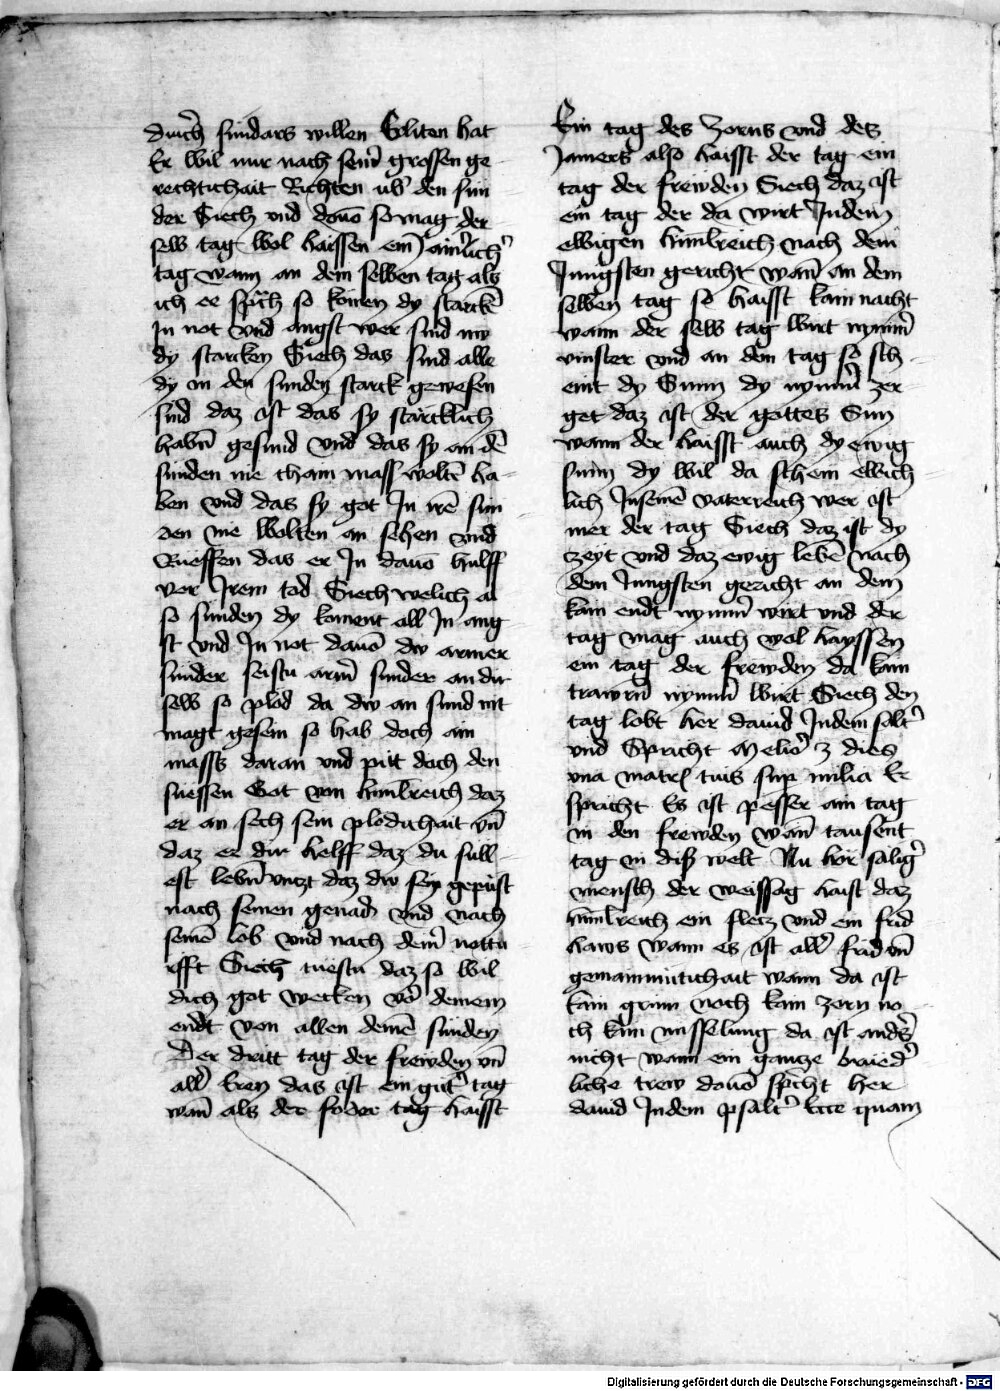 durch sundars willen Geliten hat
Er wil nur nach sein̄ grossen ge-
rechtichait Richten ub̄ den sun
der Siech vnd dauō so mag der
selb tag wol haissen ein ainlich̄
tag wann an dem selben tag als
ich ee sp̄ch so komen dy starckē
In not vnd angst wer sind nw
dy starcken Siech das sind alle
dy in den sunden starck gewesen
sind daz ist das sy starcklich
habn̄ gesund vnd das sy an dē
sunden nie chain mass woltē ha-
ben vnd das sy got In irē sun
den nie wolten an sehen vnd
Rueffen das er In dauō hulff
vor Irem tod Siech welich al
so sunden dy koment all In ang
st vnd In not dauō dw armer
sunder seistu arm̄ sunder an dir
selb so plod da dw an sund nit
magt gesein so hab doch ain
masss daran vnd pitt doch den
suessen Got von himlreich daz
er an sech sein plodichait vn̄
daz er dir helff daz du sull-
est lebn̄ vntzt daz dw sey gepust
nach seinen genadn̄ vnd nach
seinē lob vnd nach dein̄ nottu
rfft Siech tuestu daz so wil
dich got wecken vō deinem
endt von allen deinē sunden
Der dritt tag der frewden vn̄
all̄ eren das ist ein gut̄ tag
wan̄ als der foder tag haisst
Ein tag des zorns vnd des
Jamers also haisst der tag ein
tag der frewden Siech daz ist
ein tag der da wirt Indem
ewigen himlreich nach dem
Jungsten gericht wan̄ an dem
selben tag so haisst kain nacht
wann der selb tag wirt nym̄
vinster vnd an dem tag so sch-
eint dy Sunn dy nym̄ zer
get daz ist der gottes Sun
wann der haisst auch dy ewig
sunn dy wil da schein ewich-
lich In seinē vaterreich wer ist
mer der tag Siech daz ist dy
zeyt vnd daz ewig lebē nach
dem Jungsten gericht an dem
kain endt nym̄ wirt vnd der
tag mag auch wol hayssen
ein tag der frewden da kain
trawrn̄ nym̄ wirt Siech den
tag lobt her dauid Indem salt̄
vnd Spricht Melio᷒ ȝ dies
vna in atrīs tuis sup milia Er
spricht Es ist pesser ain tag
in den frewden wan̄ tausent
tag in diser welt Nu hor saliḡ
mensch der weissag haist daz
himlreich ein flecz vnd ein frid
haws wann es ist all̄ frid vn̄
gemainmutichait wann da ist
kain grim noch kain zorn no-
ch kain misselung da ist ands̄
nicht wann ein gantze brued̄-
liche trew dauō sp̄cht her
dauid Indem psalt̄ Ecce quam
Digitalisierung gefördert durch die Deutsche Forschungsgemeinschaft - DFG